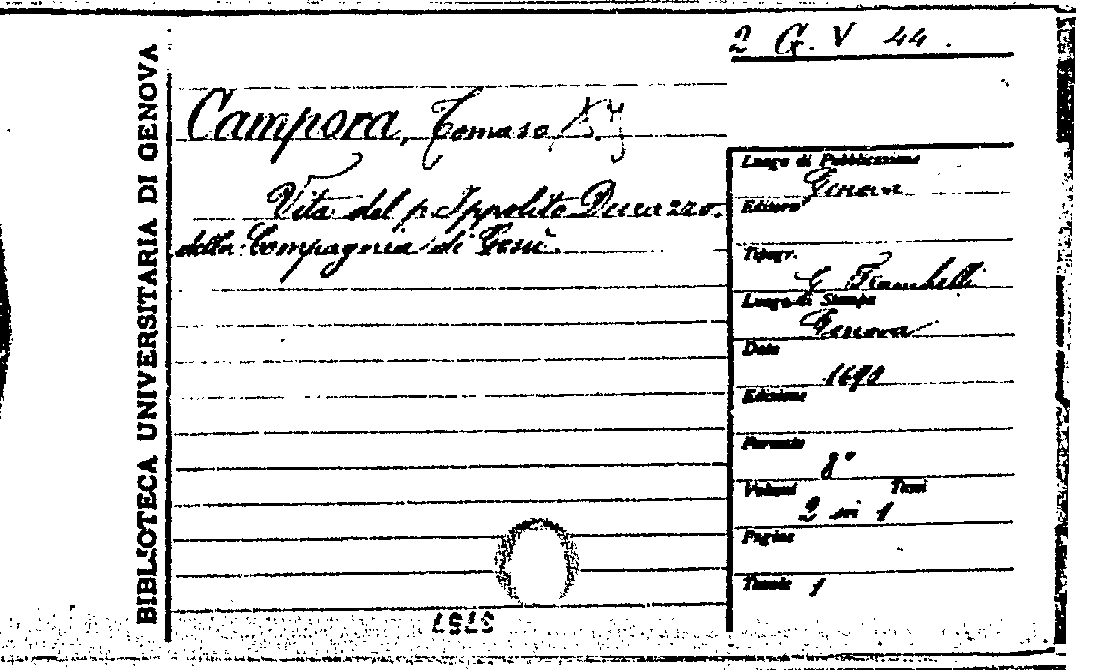 2 G. V 44.
BIBLIOTECA UNIVERSITARIA DI GENOVA
Campora, Tomaso S. J
Vita del p. Ippolito Durazzo.
della Compagnia di Gesù.
Luogo di Pubblicazione
Genova
Editore
Tipogr.
G Franchelli
Luogo di Stampa
Genova
Data
1690
Edizione
Formato
8°
Volumi Tomi
2 in 1
Pagine
Tavole 1